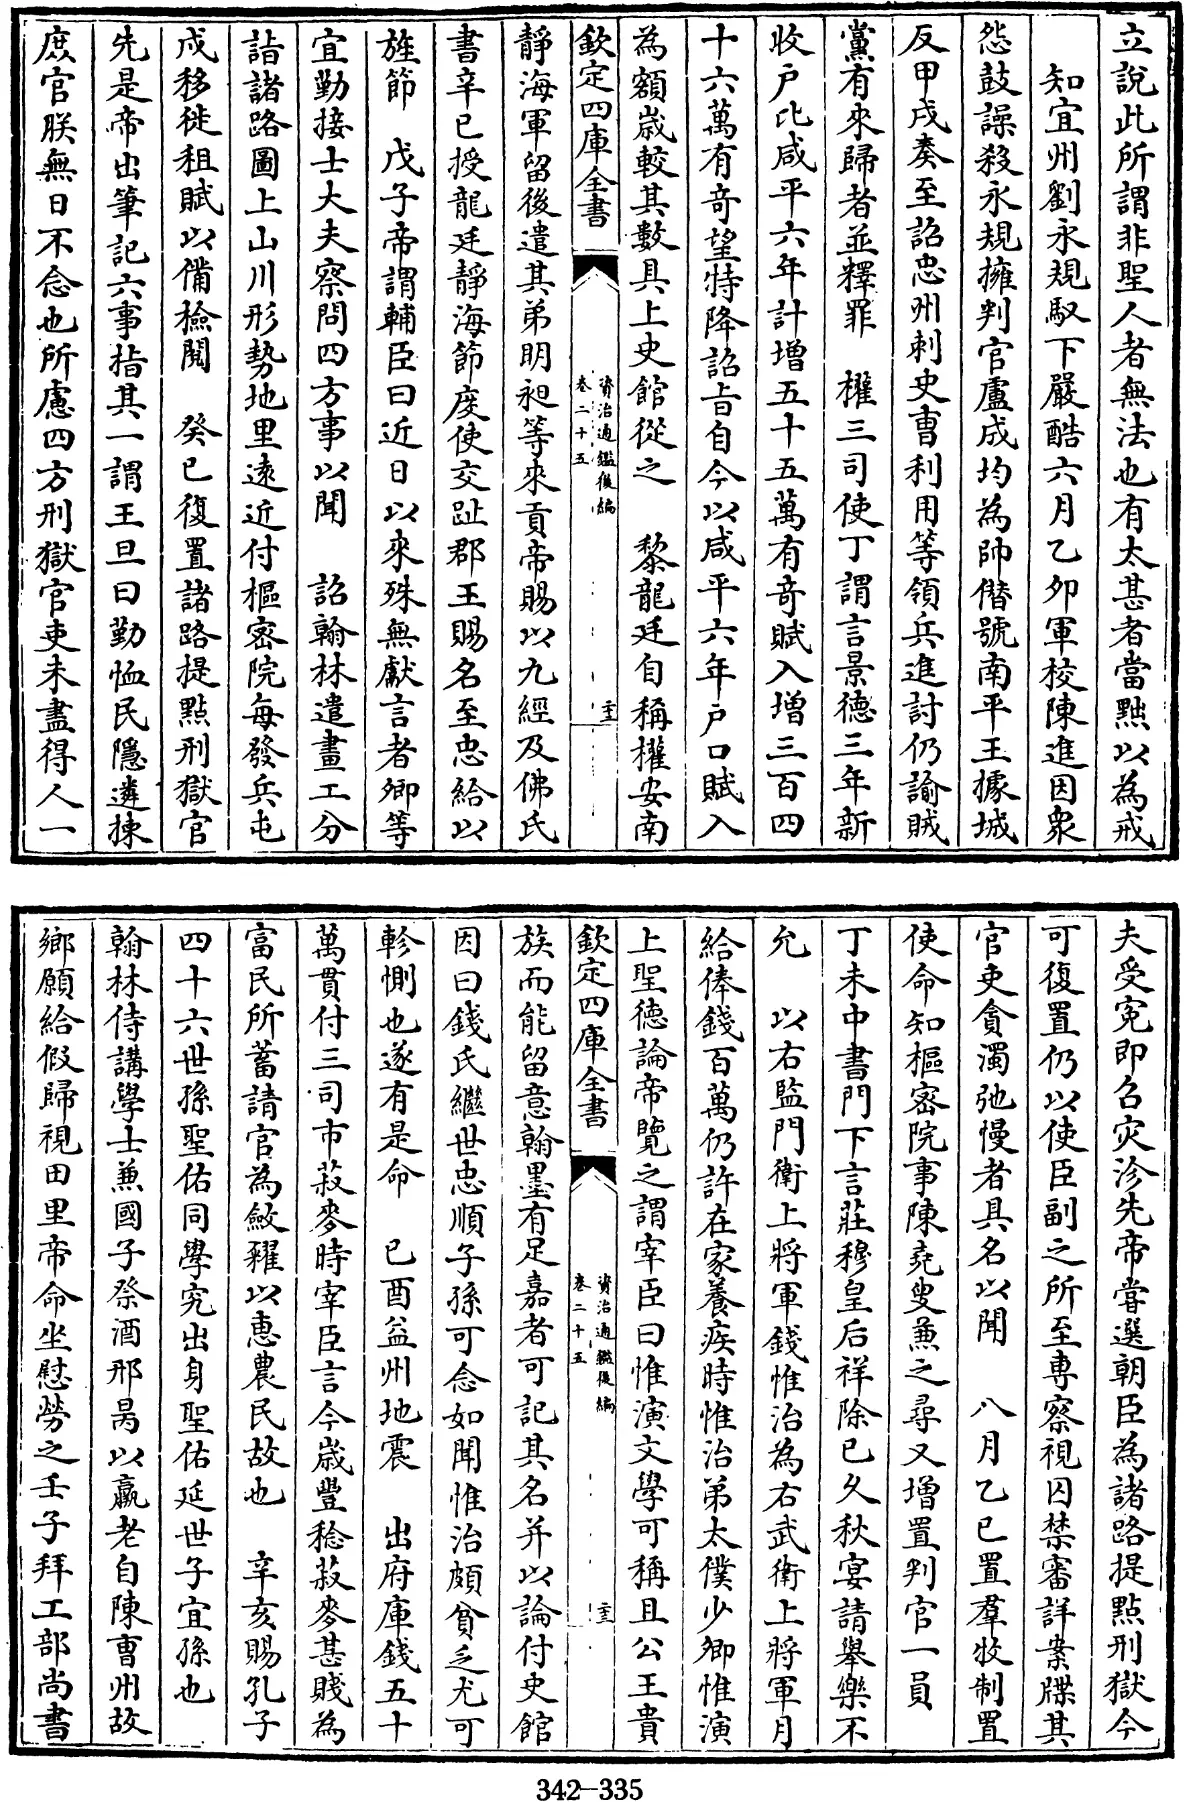 立說此所謂非聖人者無法也有太甚者當黜以為戒
知宜州劉永規馭下嚴酷六月乙卯軍校陳進因衆
怨鼓譟殺永規擁判官盧成均為帥僭號南平王據城
反甲戌奏至詔忠州刺史曹利用等領兵進討仍諭賊
黨有來歸者並釋罪　權三司使丁謂言景德三年新
收戶比咸平六年計增五十五萬有奇賦入增三百四
十六萬有奇望特降詔旨自今以咸平六年戶口賦入
為額歲較其數具上史館從之　黎龍廷自稱權安南
欽定四庫全書　資治通鑑後編卷二十五
靜海軍留後遣其弟明昶等來貢帝賜以九經及佛氏
書辛巳授龍廷靜海節度使交趾郡王賜名至忠給以
旌節　戊子帝謂輔臣曰近日以來殊無獻言者卿等
宜勤接士大夫察問四方事以聞　詔翰林遣畫工分
詣諸路圖上山川形勢地里遠近付樞密院每發兵屯
戍移徙租賦以備檢閱　癸巳復置諸路提點刑獄官
先是帝出筆記六事指其一謂王旦曰勤恤民隱遴揀
庶官朕無日不念也所慮四方刑獄官吏未盡得人一
夫受寃即召灾沴先帝嘗選朝臣為諸路提點刑獄今
可復置仍以使臣副之所至專察視囚禁審詳案牒其
官吏貪濁弛慢者具名以聞　八月乙巳置羣牧制置
使命知樞密院事陳堯叟兼之尋又增置判官一員
丁未中書門下言莊穆皇后祥除已久秋宴請舉樂不
允　以右監門衛上將軍錢惟治為右武衛上將軍月
給俸錢百萬仍許在家養疾時惟治弟太僕少卿惟演
上聖德論帝覽之謂宰臣曰惟演文學可稱且公王貴
欽定四庫全書　資治通鑑後編卷二十五
族而能留意翰墨有足嘉者可記其名并以論付史館
因曰錢氏繼世忠順子孫可念如聞惟治頗貧乏尤可
軫惻也遂有是命　已酉益州地震　出府庫錢五十
萬貫付三司市菽麥時宰臣言今歲豐稔菽麥甚賤為
富民所蓄請官為斂糴以惠農民故也　辛亥賜孔子
四十六世孫聖佑同學究出身聖佑延世子宜孫也
翰林侍講學士兼國子祭酒邢昺以羸老自陳曹州故
鄉願給假歸視田里帝命坐慰勞之壬子拜工部尚書
342-335